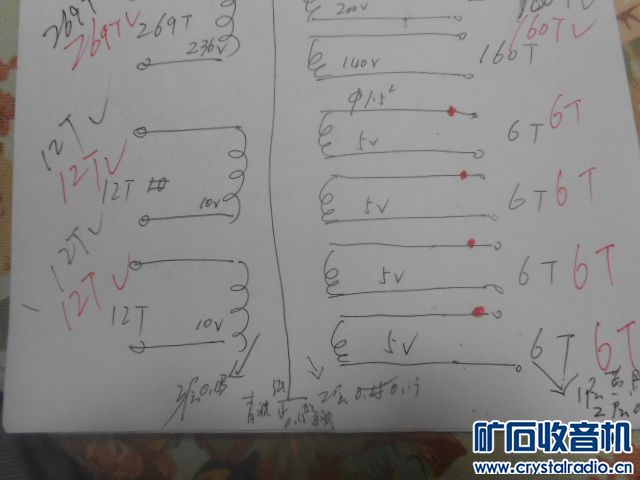 269T
269T√
269T
236V
200V
160T√
140V
160T
12T√
12T√
12T
10V
φ1.5²
5V
6T 6T
5V
6T 6T
12T√
12T√
12T
10V
5V
6T 6T
5V
6T 6T
矿石收音机
www.crystalradio.cn